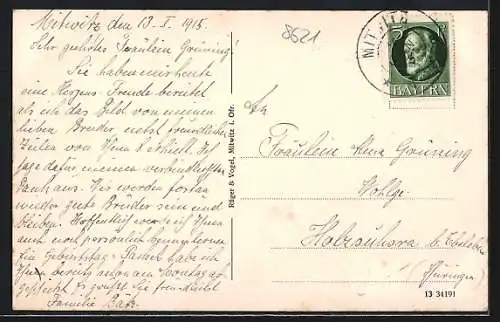 Mitwitz den 13. I. 1915.
Sehr geehrtes Fräulein Grüning!
Sie haben mir heute
eine Herzens-Freude bereitet
als ich das Bild von meinem
lieben Bruder nebst freundlichen
Zeilen von Ihnen erhielt. Ich
sage dafür meinen verbindlichsten
Dank aus. Wir werden fortan
wieder gute Brüder sein und
bleiben. Hoffentlich werde ich Ihnen
auch noch persönlich kennen lernen
Ein Geburtstags-Packet habe ich
Ihnen bereits am Sonntag ab-
geschickt. Es grüßt Sie freundlichst
Familie
8621
MITWITZ
5
BAYERN
An
Fräulein Alma Grüning
Wohlge.
b.
(Thüringen)
Rüger & Vogel, Mitwitz i. Ofr.
13 34191